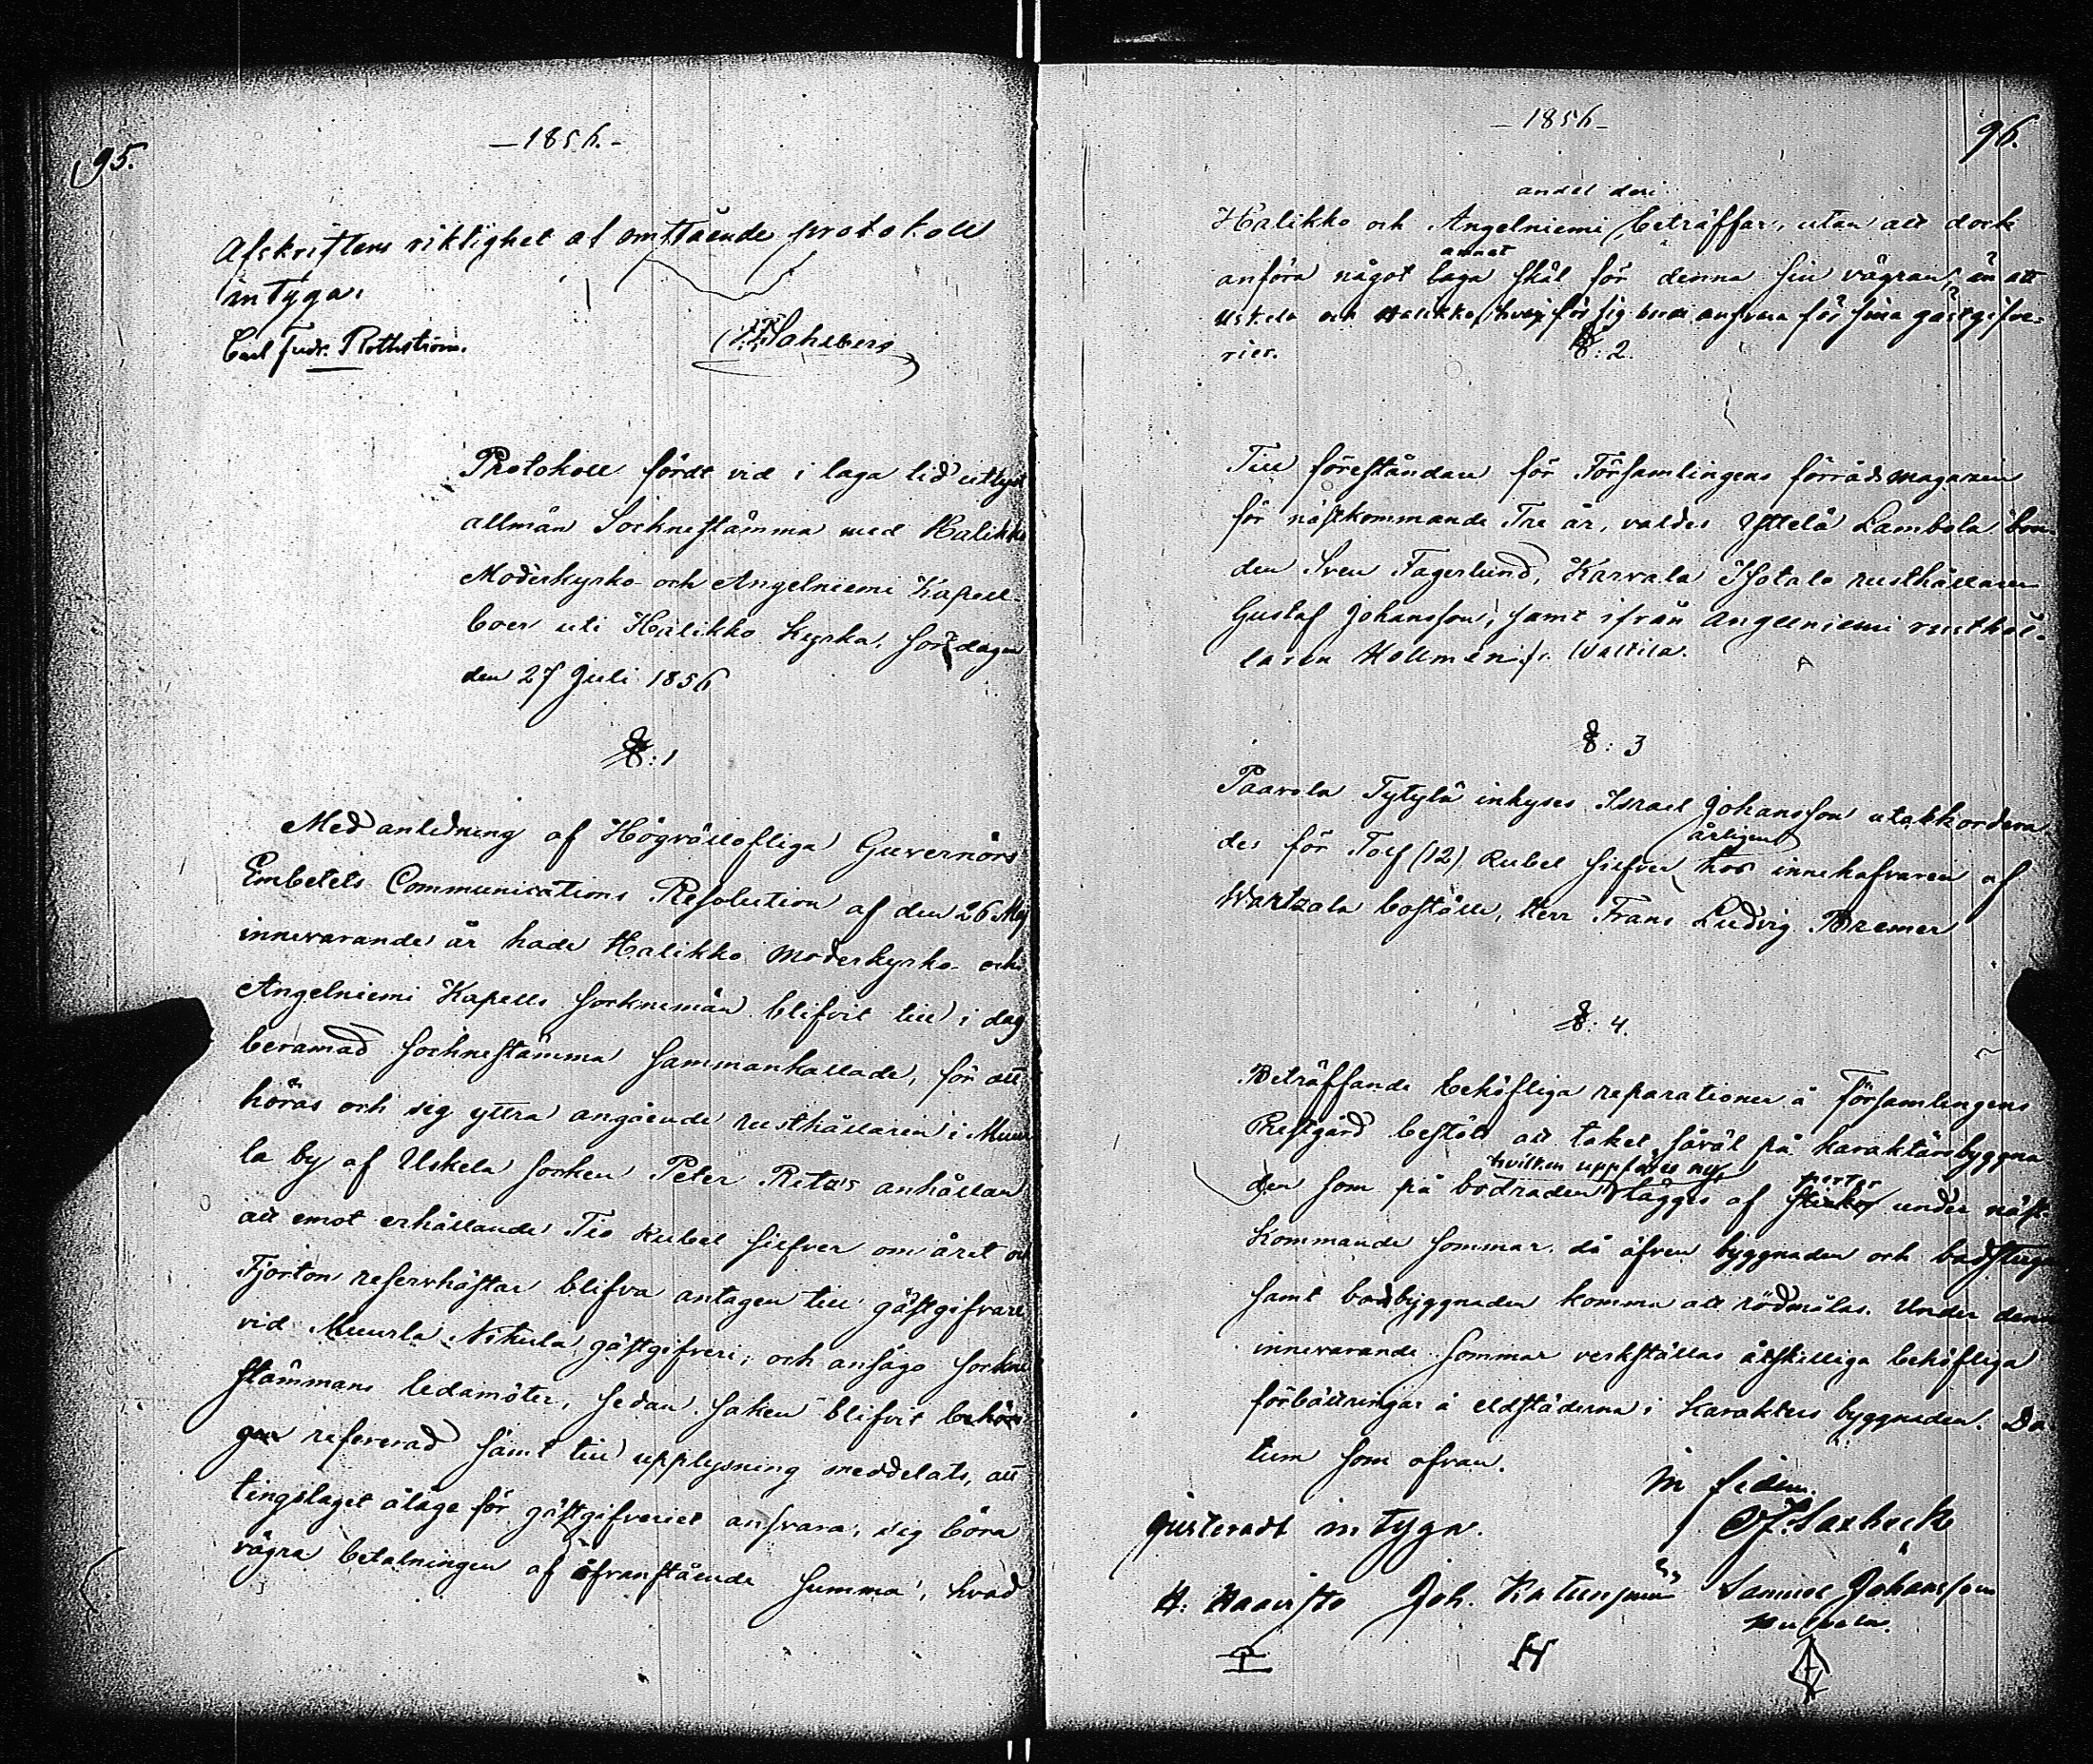 95.
— 1856. —
Afskriftens riktighet af omstående protokoll
intyga.
Carl Fredr. Rothström.
Sahlberg
Protokoll fördt vid i laga tid utlyst
allmän Socknestämma med Halikko
Moderkyrko- och Angelniemi Kapell-
boer uti Halikko Kyrka, Söndagen
den 27 Juli 1856
§: 1
Med anledning af Högvällofliga Guvernörs
Embetets Communications Resolution af den 26 Maj
innevarande år hade Halikko moderkyrko- och
Angelniemi Kapells sockenmän blifvit till i dag
beramad Socknestämma sammankallade, för att
höras och sig yttra angående rusthållaren i Muur
la by af Uskela socken Peter Ritz's anhållan
att emot erhållande Tio Rubel silfver om året och
Fjorton reservhästar blifva antagen till gästgifvare
vid Muurla Nikula gästgifveri; och ansågo Sockne
stämmans ledamöter, sedan saken blifvit behöri
gen refererad samt till upplysning meddelats, att
tingslaget ålåge för gästgifveriet ansvara, sig böra
vägra betalningen af ofvanstående summa, hvad
— 1856 —
96.
andel deri
Halikko och Angelniemi beträffar, utan att dock
annat
anföra något laga skäl för denna sin vägran, än att
Uskela och Halikko hvar för sig borde ansvara för sina gästgifve-
rier.
§: 2.
Till föreståndare för Församlingens förrådsmagasin
för nästkommande Tre år, valdes Yttelä Lambola bon-
den Sven Fagerlund, Karvala Isotalo rusthållaren
Gustaf Johansson, samt ifrån Angelniemi rusthål-
laren Hollmén fr. Waltila.
§: 3
Paavola Tytylä inhyses Israel Johansson utackordera
årligen
des för Tolf (12) Rubel silfver hos innehafvaren af
Wartsala boställe, Herr Frans Ludvig Bremer
§: 4.
Beträffande behöfliga reparationer å Församlingens
Prestgård bestöts att taket, såväl på karaktärsbyggna
hvilken uppföres ny,
pertor
den som på bodraden lägges af under näst
kommande sommar, då äfven byggnaden och badstugu
samt bodbyggnaden komma att rödmålas. Under den
innevarande sommar verkställas åtskilliga behöfliga
förbättringar å eldstäderna i Karakters byggnaden. Da
tum som ofvan.
In fidem.
Justeradt intyga.
H. Haavisto Joh. Samuel Johansson
H